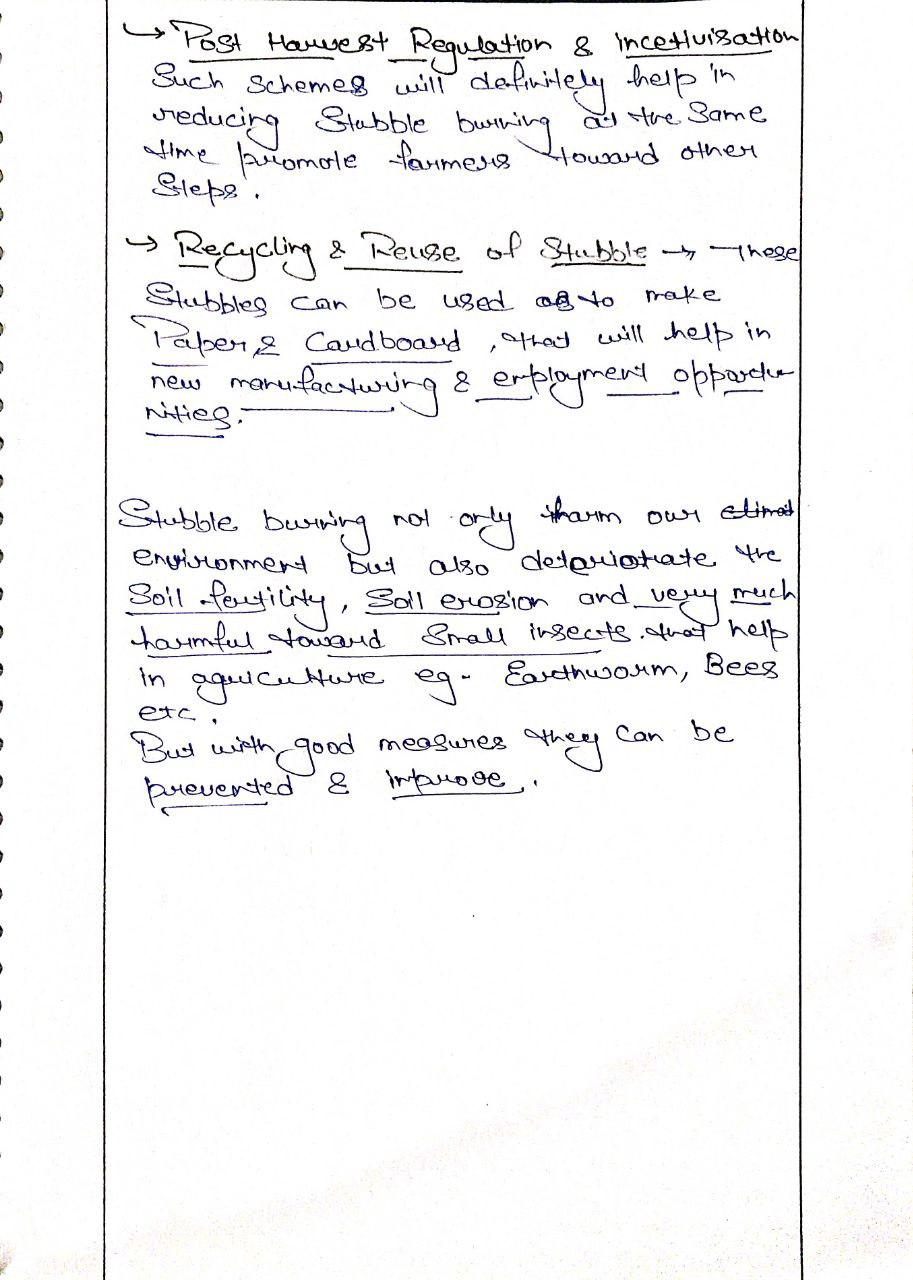 → Post Harvest Regulation & incetivisation
Such schemes will definitely help in
reducing Stubble burning at the Same
time promote farmers toward other
Steps.
→ Recycling & Reuse of Stubble → These
Stubbles can be used as to make
Paper & Cardboard, that will help in
new manufacturing & employment opportu
nities.
Stubble burning not only harm our climat
environment but also deteriotrate the
Soil fertility, Soil erosion and very much
harmful toward Small insects that help
in agriculture eg- Earthworm, Bees
etc.
But with good measures they can be
prevented & improve.